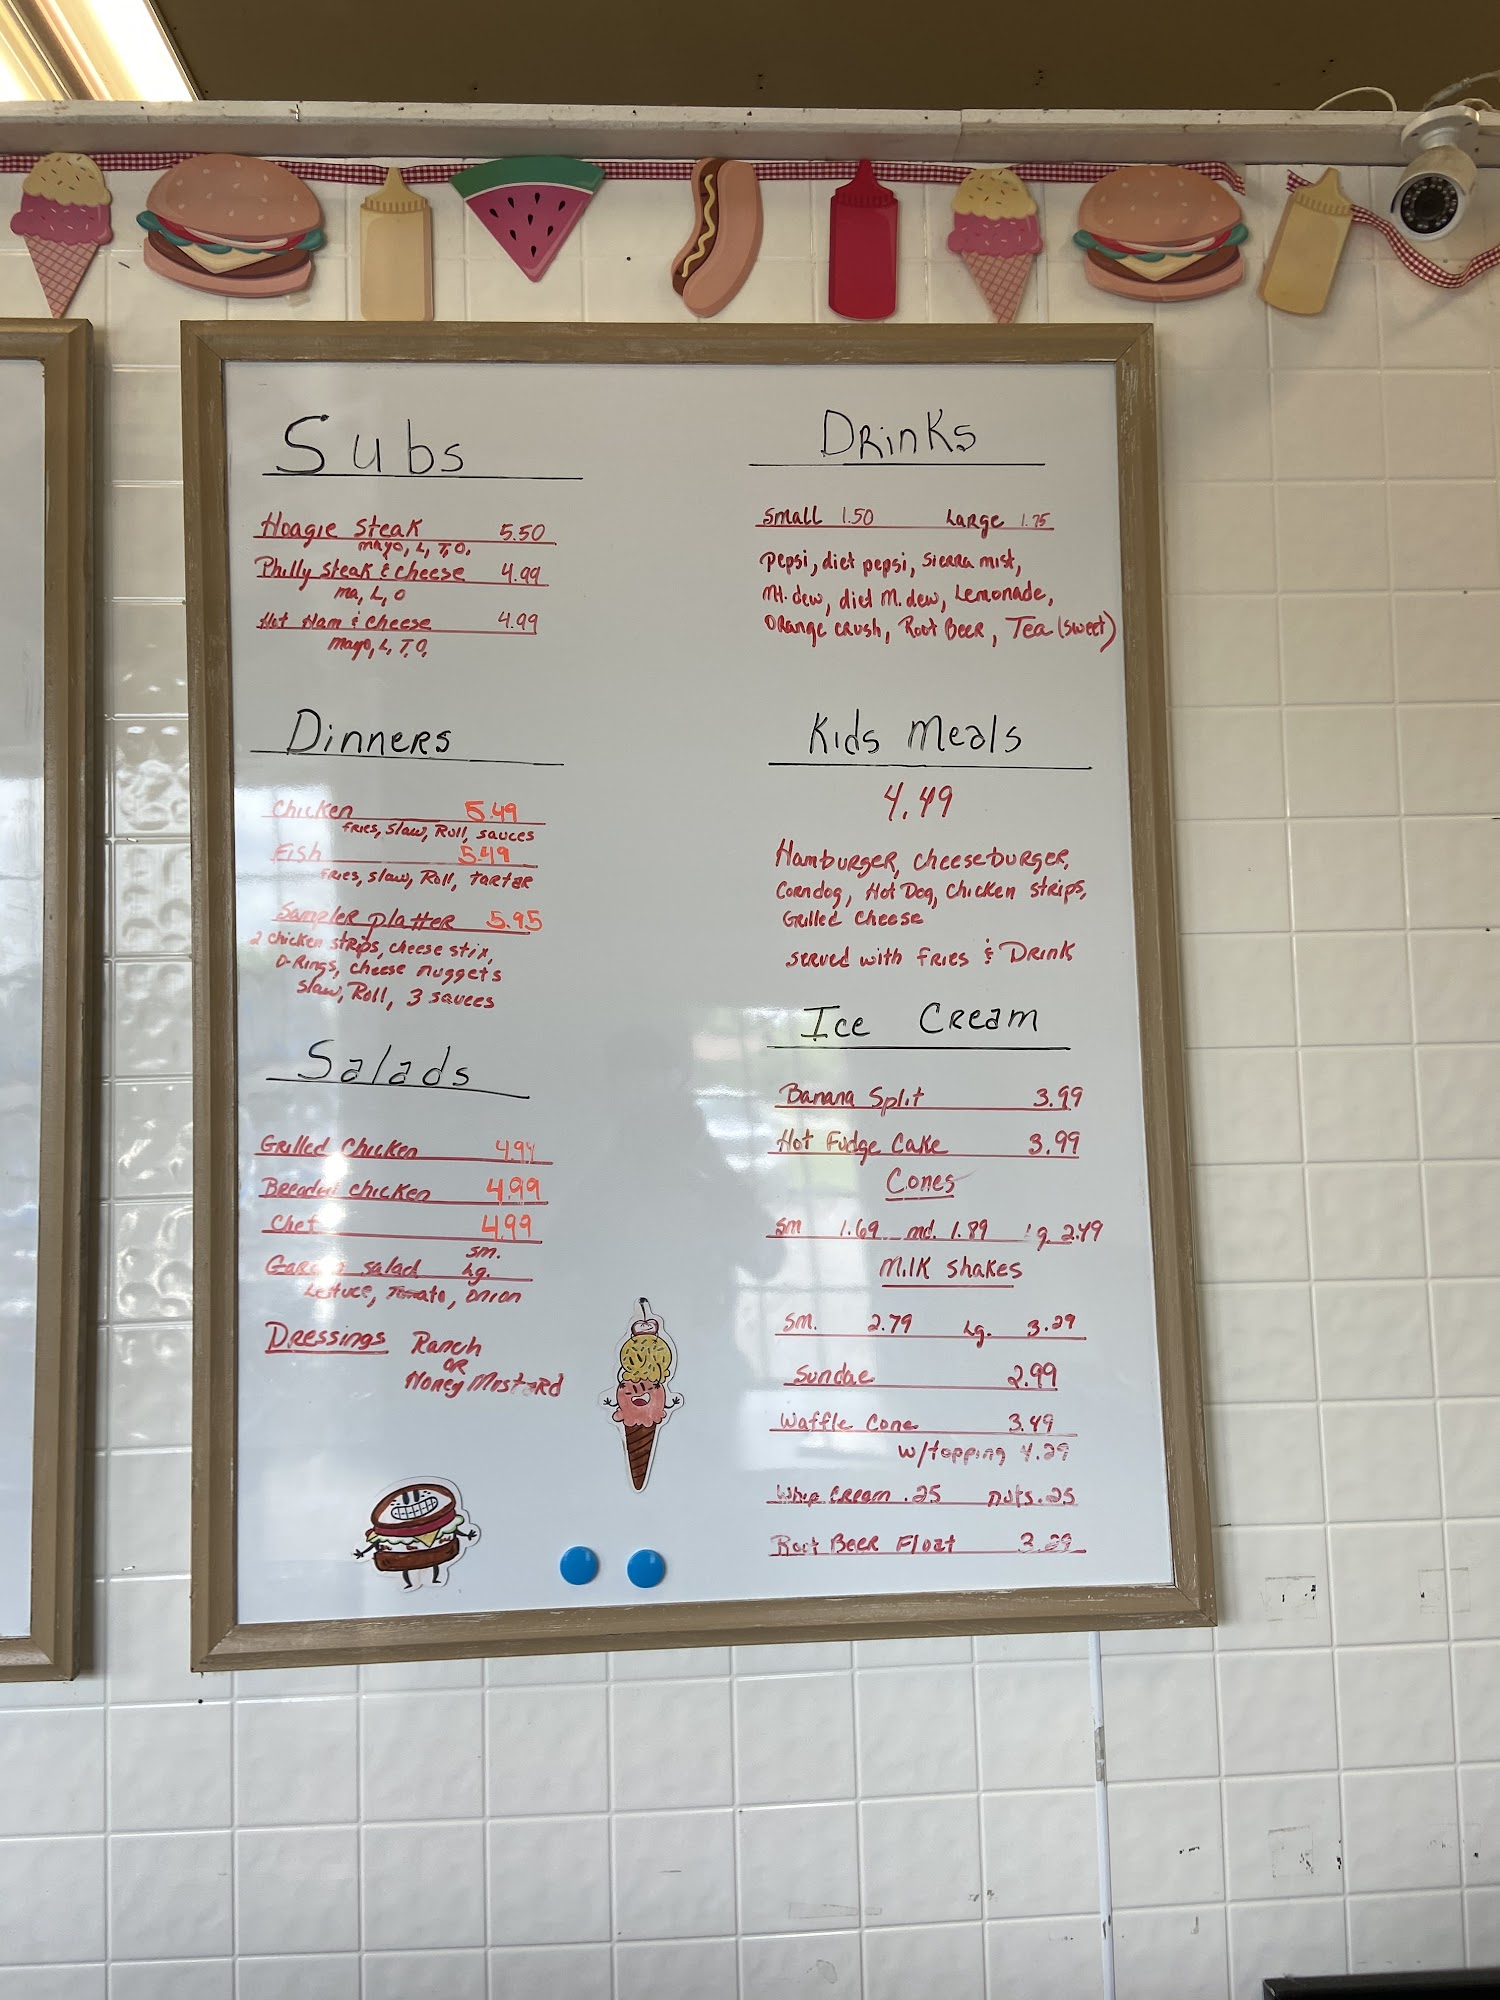 Subs
Hoagie Steak 5.50
mayo, L, T, O.
Philly Steak & Cheese 4.99
ma, L, O
Hot Ham & Cheese 4.99
mayo, L, T, O,
Dinners
Chicken 5.49
fries, slaw, Roll, sauces
Fish 5.49
fries, slaw, Roll, tartar
Sampler platter 5.95
2 chicken strips, cheese stix,
O-Rings, cheese nuggets
slaw, Roll, 3 sauces
Salads
Grilled Chicken
Breaded chicken 4.99
Chef 4.99
sm.
Garden salad Lg.
Lettuce, Tomato, onion
Dressings Ranch
OR
Honey Mustard
Drinks
Small 1.50 Large 1.75
pepsi, diet pepsi, sierra mist,
Mt. dew, diet M. dew, Lemonade,
Orange crush, Root Beer, Tea (sweet)
Kids Meals
4.49
Hamburger, cheeseburger,
Corndog, Hot Dog, Chicken strips,
Grilled Cheese
served with fries & Drink
Ice Cream
Banana Split 3.99
Hot Fudge Cake 3.99
Cones
sm 1.69 md. 1.89 lg. 2.49
Milk Shakes
sm. 2.79 Lg. 3.29
Sundae 2.99
Waffle Cone 3.49
w/topping 4.29
Whip Cream .25 nuts .25
Root Beer Float